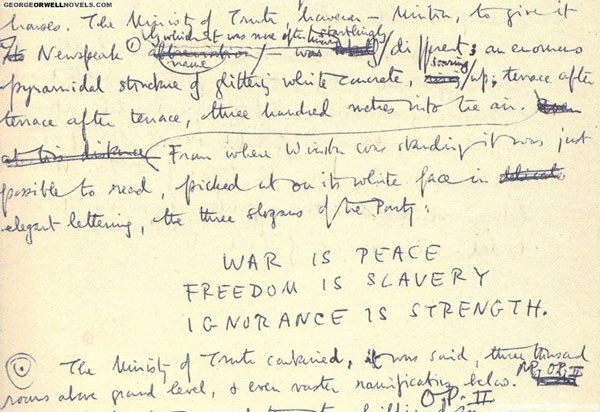 GEORGEORWELLNOVELS.COM
houses. The Ministry of Truth, however – Minitru, to give it
its Newspeak name by which it was more often – was startlingly different; an enormous
pyramidal structure of glittering white concrete, soaring up, terrace after
terrace after terrace, three hundred metres into the air. Even
at this distance From where Winston was standing it was just
possible to read, picked out on its white face in delicate
elegant lettering, the three slogans of the Party:
WAR IS PEACE
FREEDOM IS SLAVERY
IGNORANCE IS STRENGTH.
The Ministry of Truth contained, it was said, three thousand
rooms above ground level, & even vaster ramifications below.
O.P. II